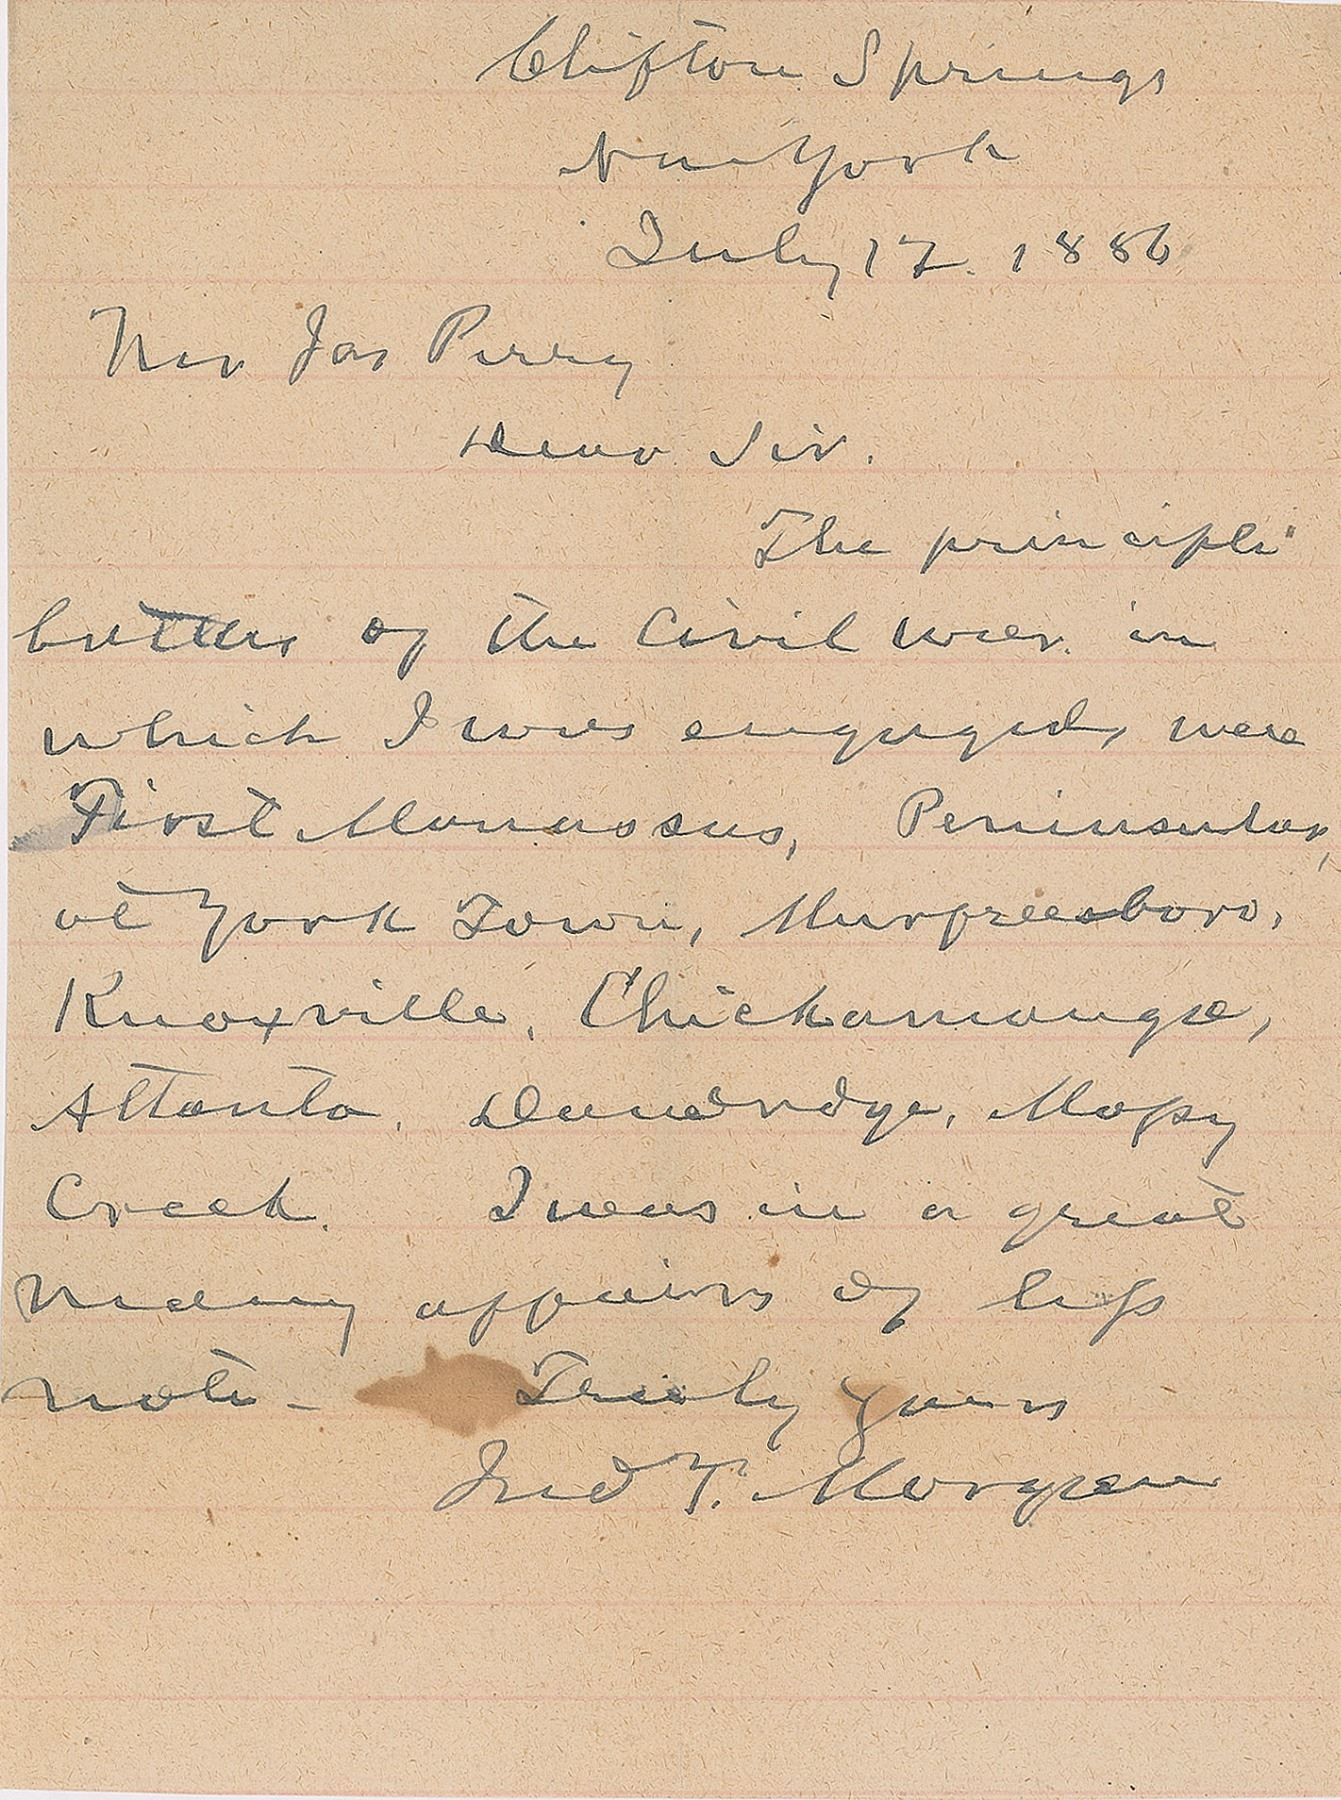 Clifton Springs
New York
July 17. 1886
Mr Jas Perry
Dear Sir.
The principle
battles of the Civil war in
which I was engaged, were
First Manassas, Peninsular,
at York Town, Murfreesboro,
Knoxville, Chickamauga,
Atlanta, Dandridge, Mossy
Creek. I was in a great
many affairs of less
note - Truly yours
Jno T. Morgan